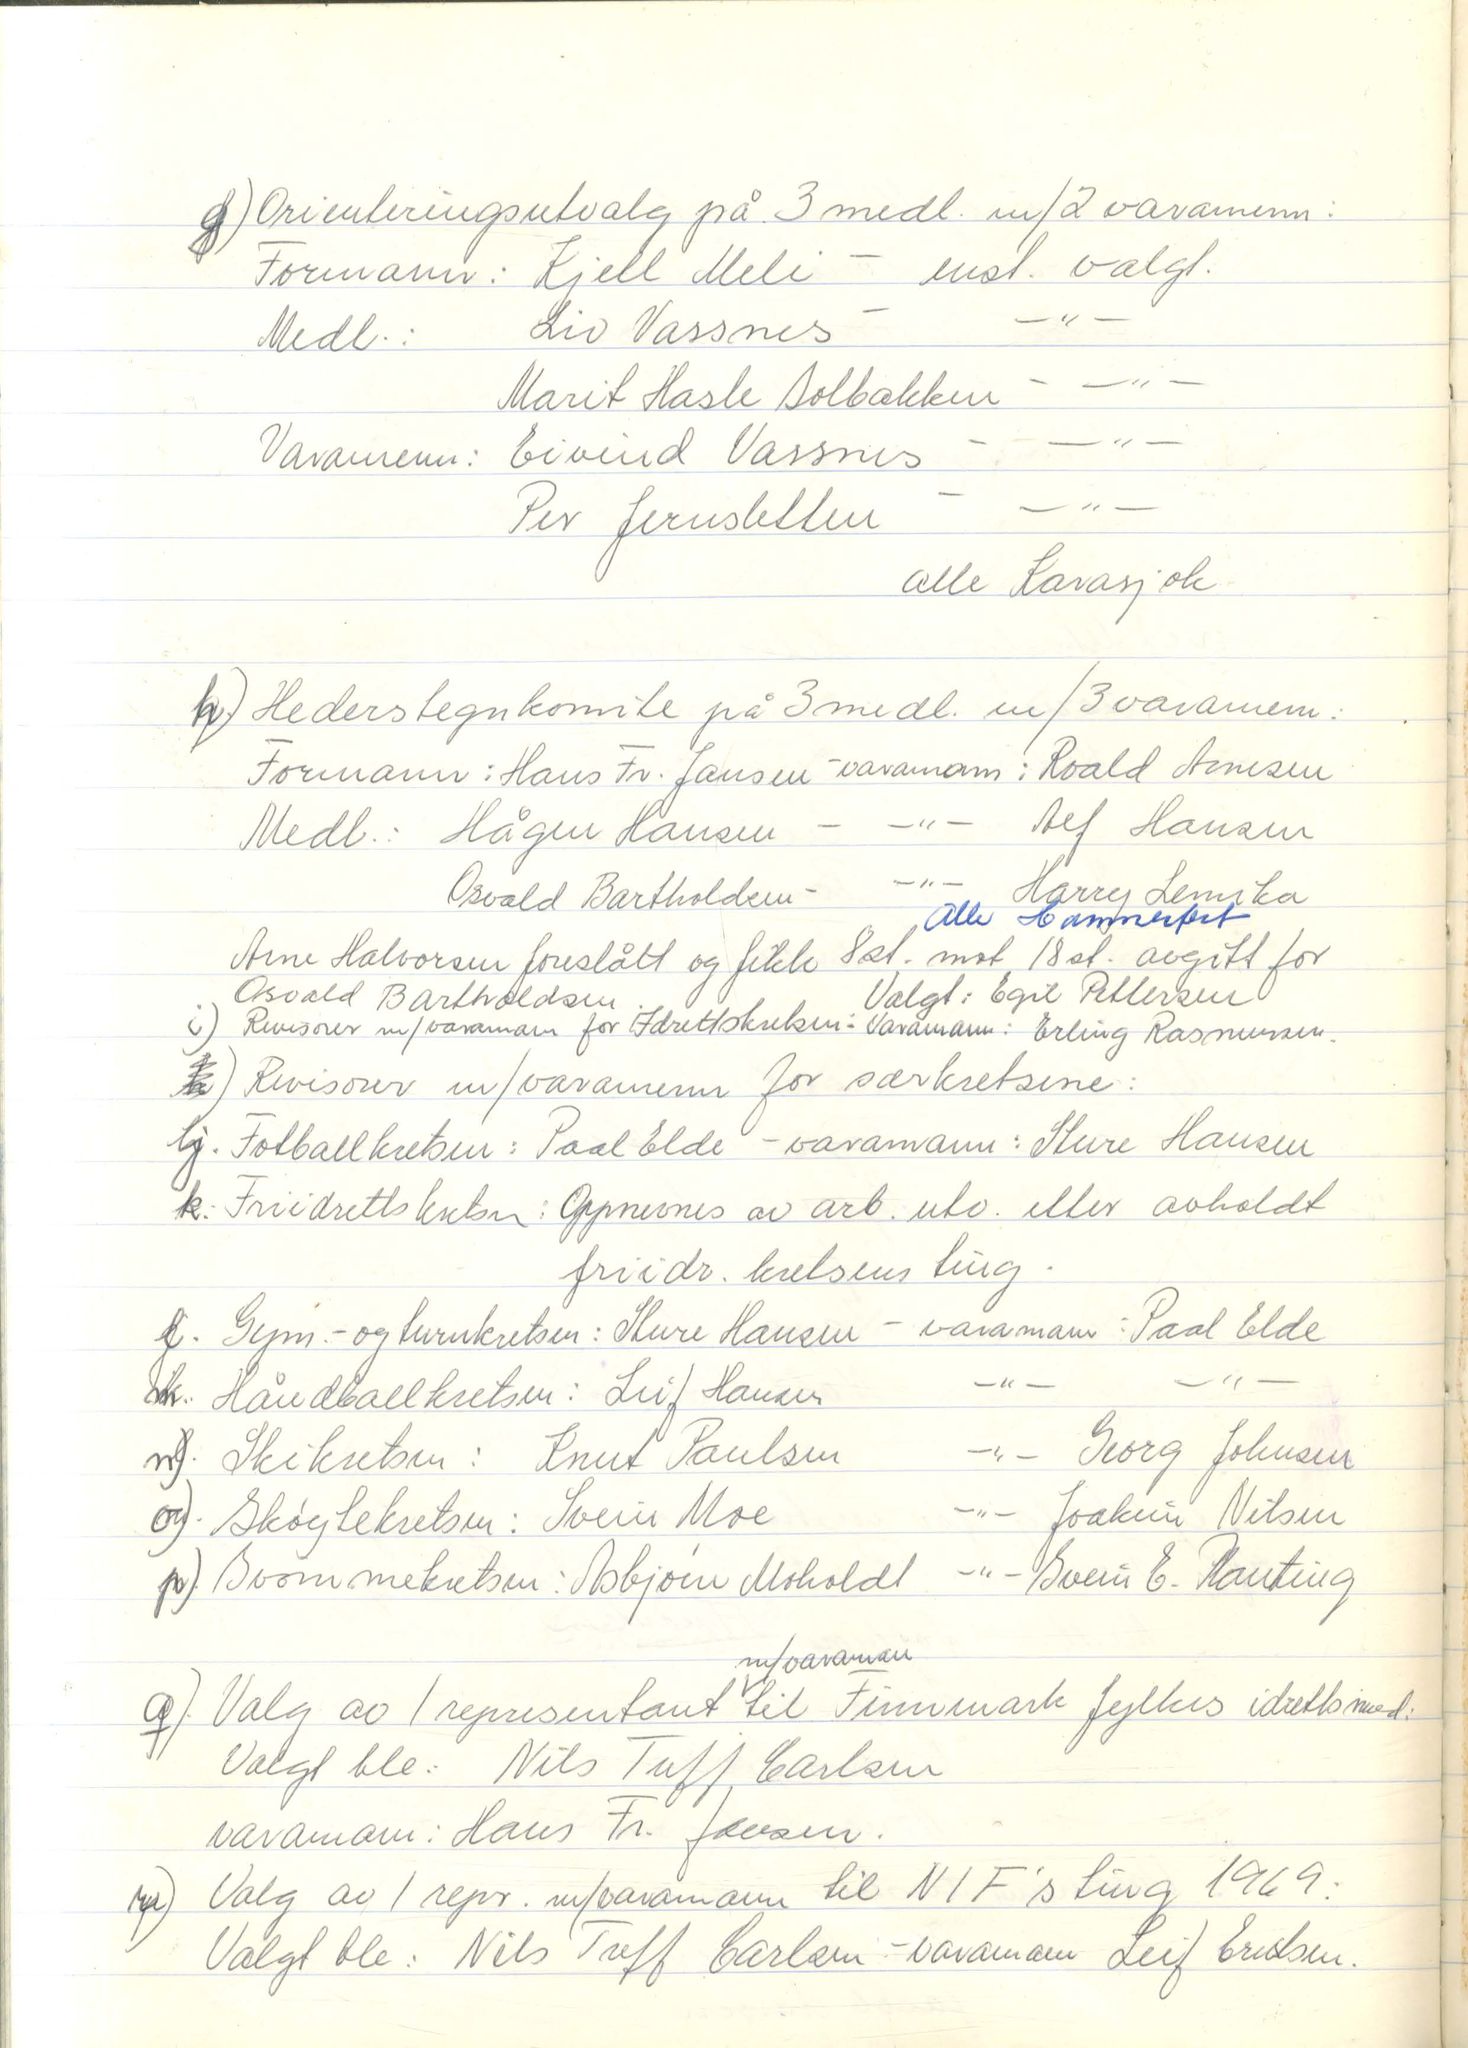 g) Orienteringsutvalg på 3 medl. m/2 varamenn:
Formann: Kjell Meli - enst. valgt.
Medl.: Liv Vassnes - -"-
Marit Hasle Solbakken - -"-
Varamenn: Eivind Vassnes - -"-
Per Jernsletten - -"-
alle Karasjok
h) Hederstegnkomite på 3 medl. m/3 varamenn:
Formann: Hans Fr. Jansen - varamann: Roald Arnesen
Medl.: Hågen Hansen - -"- Alf Hansen
Osvald Bartholdsen - -"- Harry Lemika
Alle Hammerfest
Arne Halvorsen foreslått og fikk 8 st. mot 18 st. avgitt for
Osvald Bartholdsen. Valgt: Egil Pettersen
i) Revisorer m/varamann for Idrettskretsen: Varamann: Erling Rasmussen.
Revisorer m/varamenn for særkretsene:
j. Fotballkretsen: Paal Elde - varamann: Sture Hansen
k. Friidrettskretsen: Oppnevnes av arb. utv. etter avholdt
friidr. kretsens ting.
l. Gym.- og turnkretsen: Sture Hansen - varamann: Paal Elde
m. Håndballkretsen: Leif Hansen -"- -"-
n). Skikretsen: Knut Paulsen -"- Georg Johnsen
o). Skøytekretsen: Svein Moe -"- Joakim Nilsen
p). Svømmekretsen: Asbjørn Moholdt -"- Svein E. Hanting
m/varamann
q). Valg av 1 representant til Finnmark fylkes idrettsnevnd:
Valgt ble: Nils Tuff Carlsen
varamann: Hans Fr. Jansen.
r) Valg av 1 repr. m/varamann til NIF's ting 1969:
Valgt ble: Nils Tuff Carlsen - varamann Leif Eriksen.